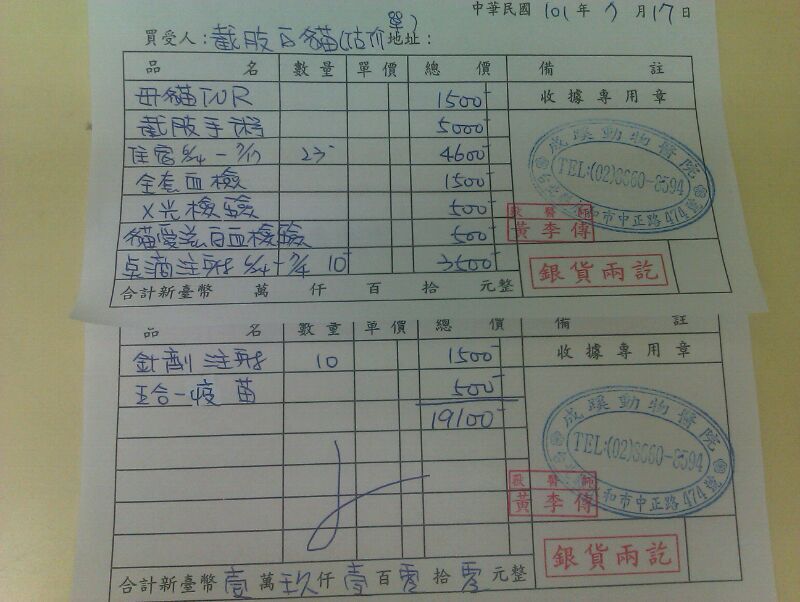 中華民國 101 年 7 月 17 日
買受人：截肢白貓(估价單) 地址：
品 名 數 量 單 價 總 價 備 註
母貓TNR 1500 收據專用章
截肢手術 5000
住宿 6/24 - 7/17 23 4600
全套血檢 1500
X光檢驗 500
貓愛滋白血檢驗 500
点滴注射 6/24 - 7/4 10 3500
成蹊動物醫院
TEL:(02)8660-8594
和市中正路474號
獸醫師
黃李傳
銀貨兩訖
合計新臺幣 萬 仟 百 拾 元整
品 名 數 量 單 價 總 價 備 註
針劑注射 10 1500 收據專用章
五合一疫苗 500
19100
成蹊動物醫院
TEL:(02)8660-8594
和市中正路474號
獸醫師
黃李傳
銀貨兩訖
合計新臺幣 壹 萬 玖 仟 壹 百 零 拾 零 元整